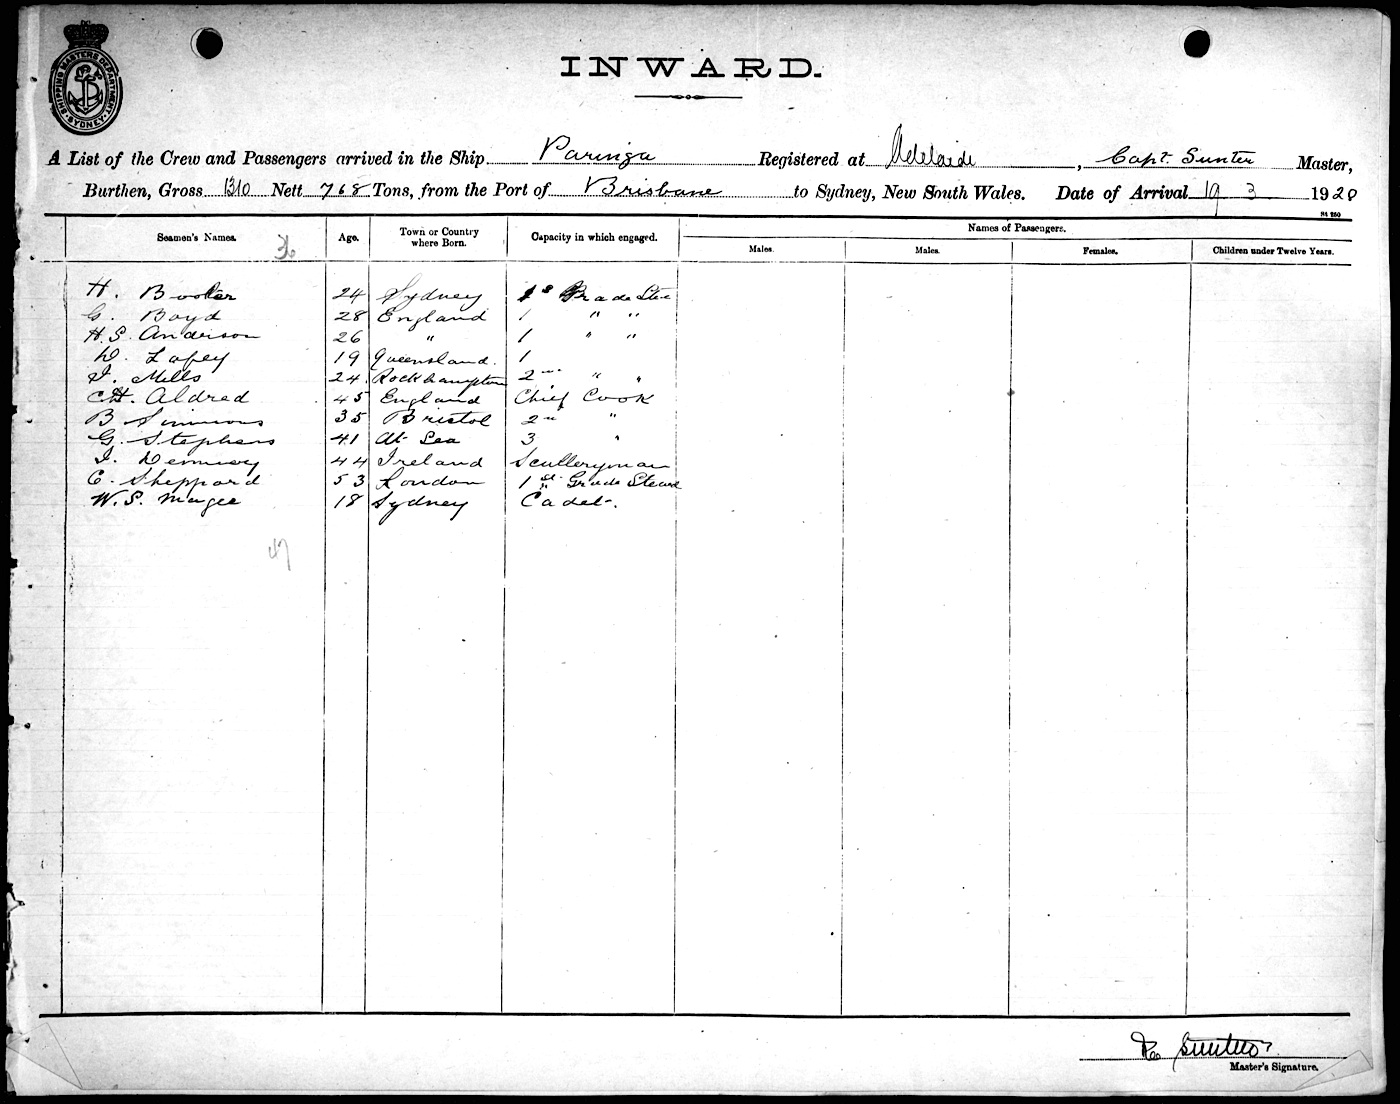 SHIPPING MASTERS DEPARTMENT · SYDNEY ·
INWARD.
A List of the Crew and Passengers arrived in the Ship Paringa Registered at Adelaide, Capt Sunter Master,
Burthen, Gross 1310 Nett 768 Tons, from the Port of Brisbane to Sydney, New South Wales. Date of Arrival 19 3 1920
Names of Passengers.
Seamen's Names. 36 Age. Town or Country where Born. Capacity in which engaged. Males. Males. Females. Children under Twelve Years.
H. 24 Sydney 1st Grade Stew
G. Boyd 28 England 1 " "
H. S. Anderson 26 " 1 " "
19 Queensland. 1
Mills 24. Rockhampton 2nd " "
CH. Aldred 45 England Chief Cook
B Simmons 35 Bristol 2nd "
G. Stephens 41 At Sea 3 "
44 Ireland Sculleryman
C. Sheppard 53 London 1st Grade Steward
W. S. Magee 18 Sydney Cadet.
47
Sunter
Master's Signature.